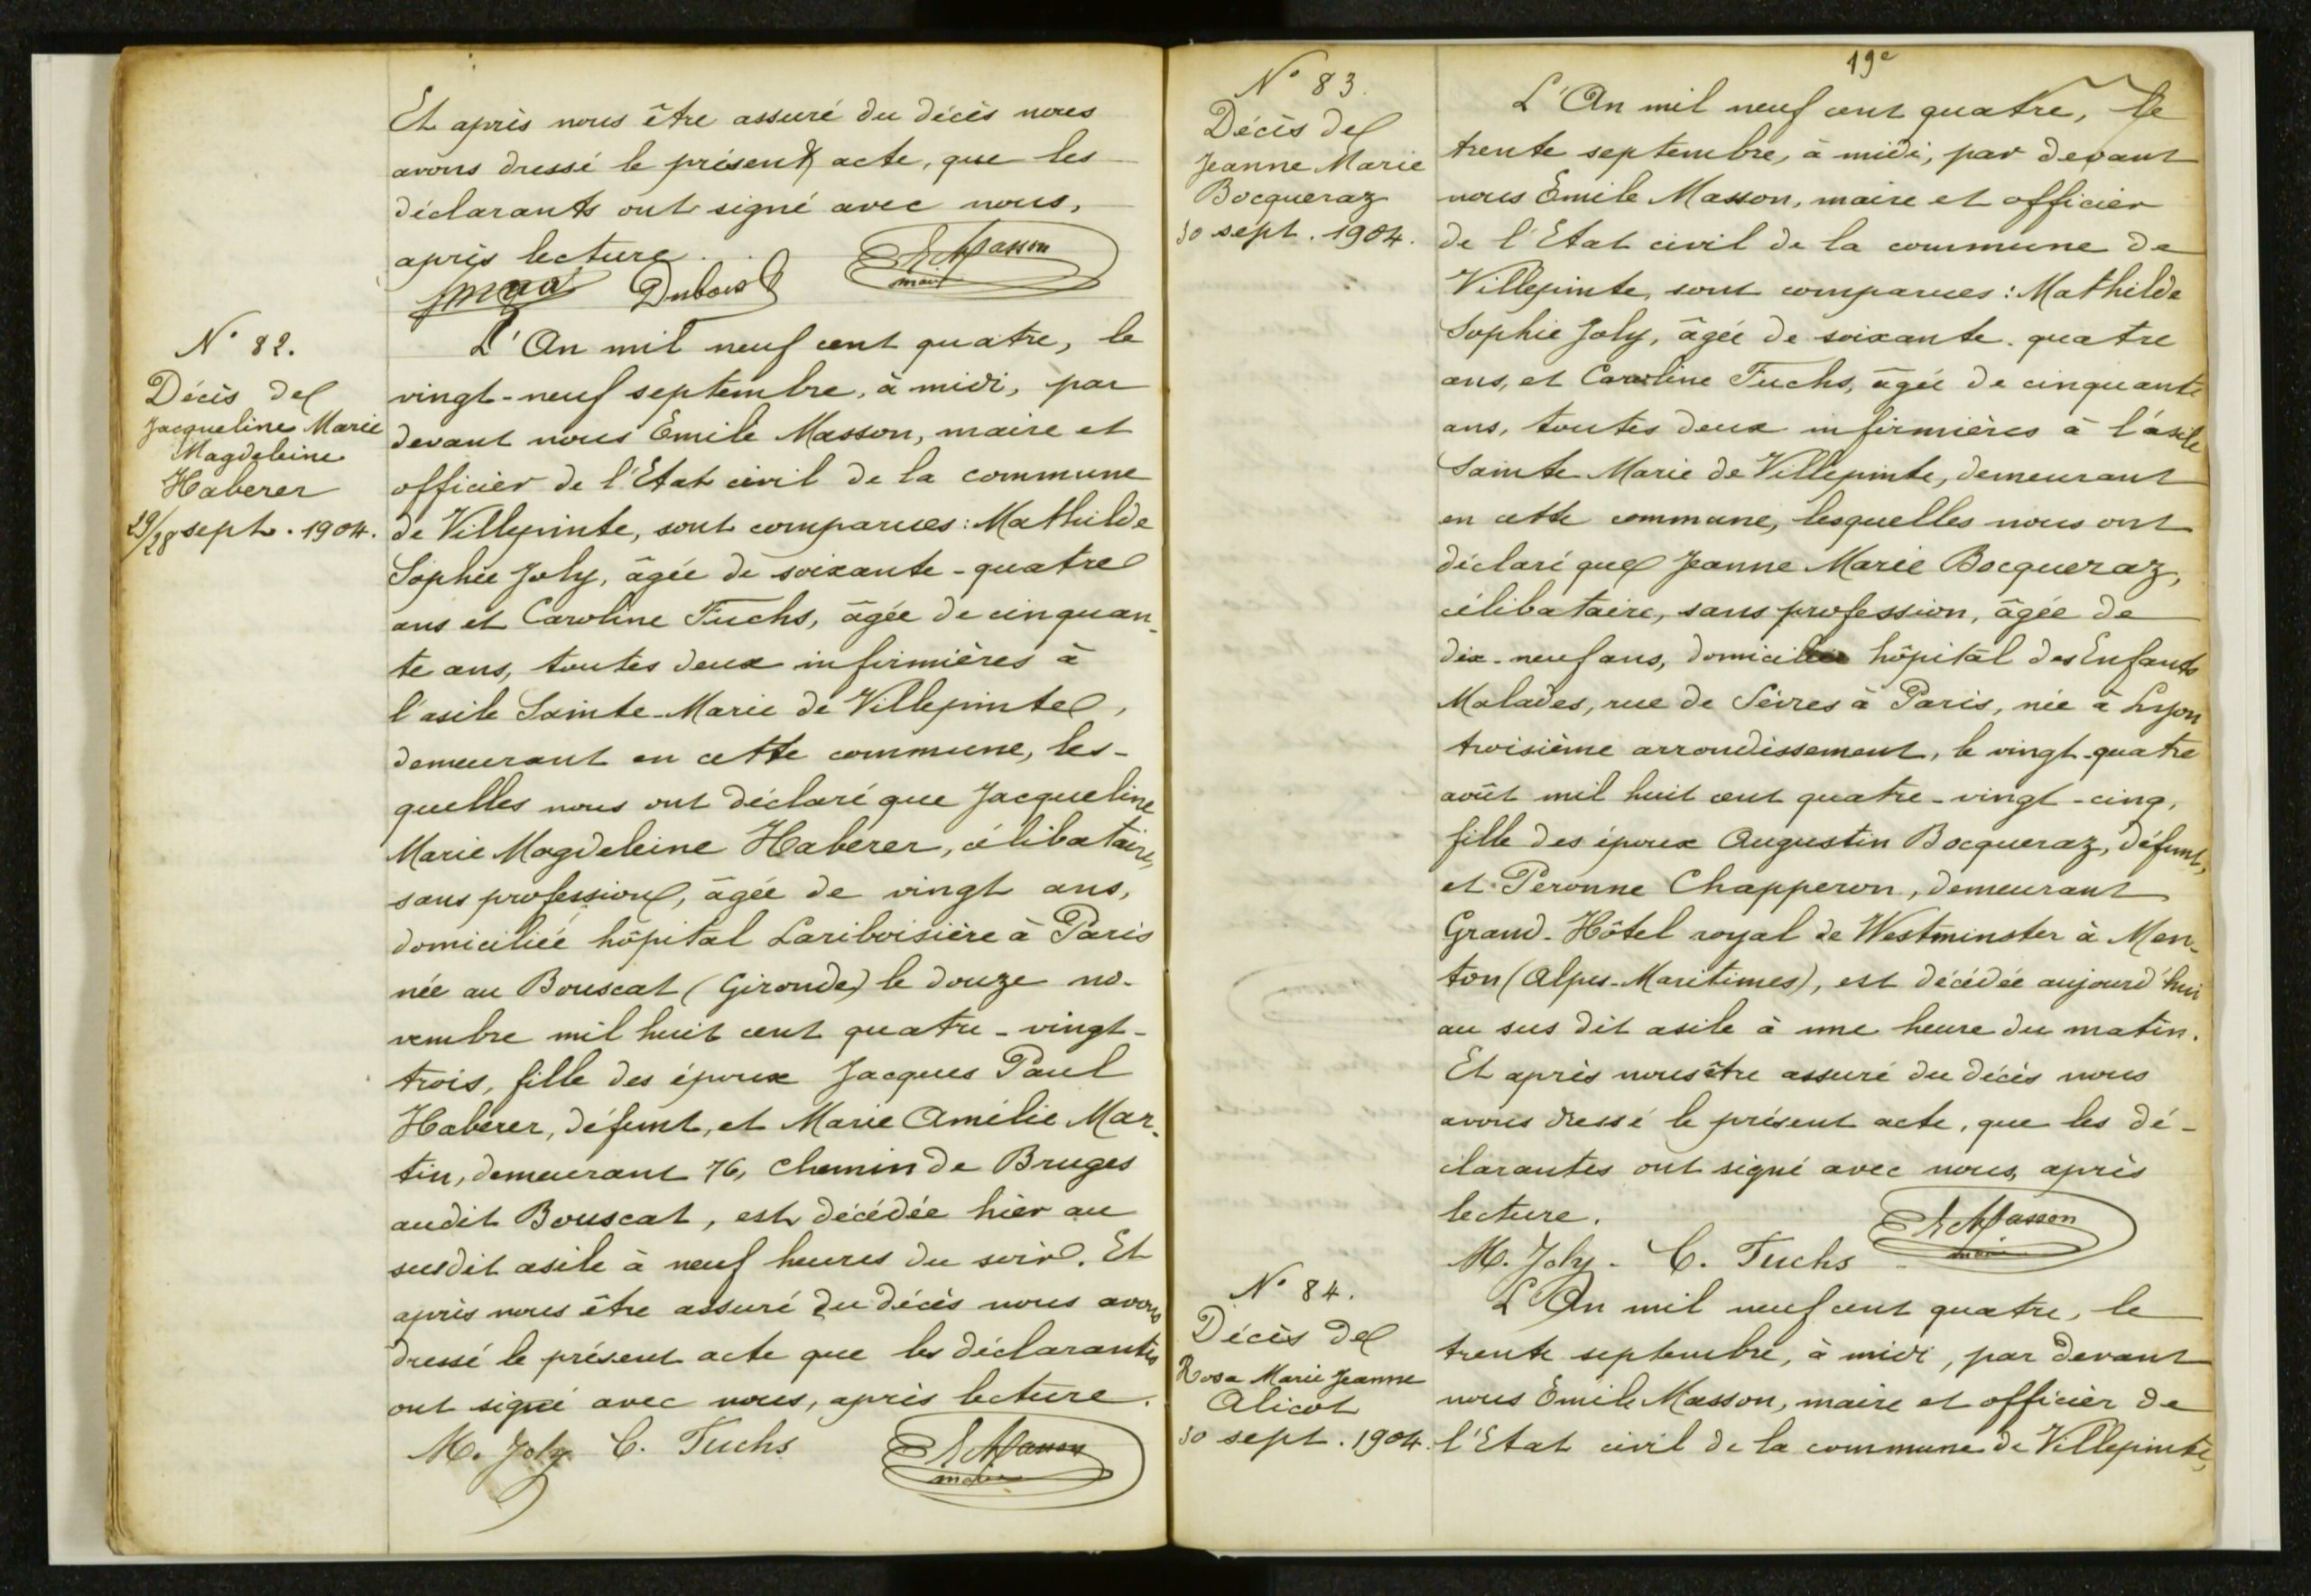 Et après nous être assuré du décès nous
avons dressé le présent acte, que les
déclarants ont signé avec nous,
après lecture.
Dubois
EMasson
maire
N° 82.
Décès de
Jacqueline Marie
Magdeleine
Haberer
29/28 sept. 1904.
L'An mil neuf cent quatre, le
vingt-neuf septembre, à midi, par
devant nous Emile Masson, maire et
officier de l'Etat civil de la commune
de Villepinte, sont comparues: Mathilde
Sophie Joly, âgée de soixante-quatre
ans et Caroline Fuchs, âgée de cinquan-
te ans, toutes deux infirmières à
l'asile Sainte-Marie de Villepinte,
demeurant en cette commune, les-
quelles nous ont déclaré que Jacqueline
Marie Magdeleine Haberer, célibataire,
sans profession, âgée de vingt ans,
domiciliée hôpital Lariboisière à Paris
née au Bouscat (Gironde) le douze no-
vembre mil huit cent quatre-vingt-
trois, fille des époux Jacques Paul
Haberer, défunt, et Marie Amélie Mar-
tin, demeurant 76, Chemin de Bruges
audit Bouscat, est décédée hier au
susdit asile à neuf heures du soir. Et
après nous être assuré du décès nous avons
dressé le présent acte que les déclarantes
ont signé avec nous, après lecture.
M. Joly C. Fuchs
EMasson
maire
19e
N° 83.
Décès de
Jeanne Marie
Bocqueraz
30 sept. 1904.
L'An mil neuf cent quatre, le
trente septembre, à midi, par devant
nous Emile Masson, maire et officier
de l'Etat civil de la commune de
Villepinte, sont comparues: Mathilde
Sophie Joly, âgée de soixante-quatre
ans, et Caroline Fuchs, âgée de cinquante
ans, toutes deux infirmières à l'asile
Sainte Marie de Villepinte, demeurant
en cette commune, lesquelles nous ont
déclaré que Jeanne Marie Bocqueraz,
célibataire, sans profession, âgée de
dix-neuf ans, domiciliée hôpital des Enfants
Malades, rue de Sèvres à Paris, née à Lyon
troisième arrondissement, le vingt-quatre
août mil huit cent quatre-vingt-cinq,
fille des époux Augustin Bocqueraz, défunt,
et Peronne Chapperon, demeurant
Grand-Hôtel royal de Westminster à Men-
ton (Alpes-Maritimes), est décédée aujourd'hui
au sus dit asile à une heure du matin.
Et après nous être assuré du décès nous
avons dressé le présent acte, que les dé-
clarantes ont signé avec nous, après
lecture.
M. Joly. C. Fuchs
EMasson
maire
N° 84.
Décès de
Rosa Marie Jeanne
Alicot
30 sept. 1904.
L'An mil neuf cent quatre, le
trente septembre, à midi, par devant
nous Emile Masson, maire et officier de
l'Etat civil de la commune de Villepinte,